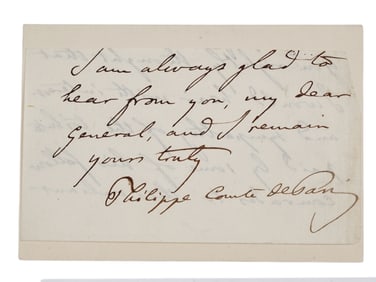 I am always glad to
hear from you, my dear
General, and I remain
yours truly
Philippe Comte de Paris